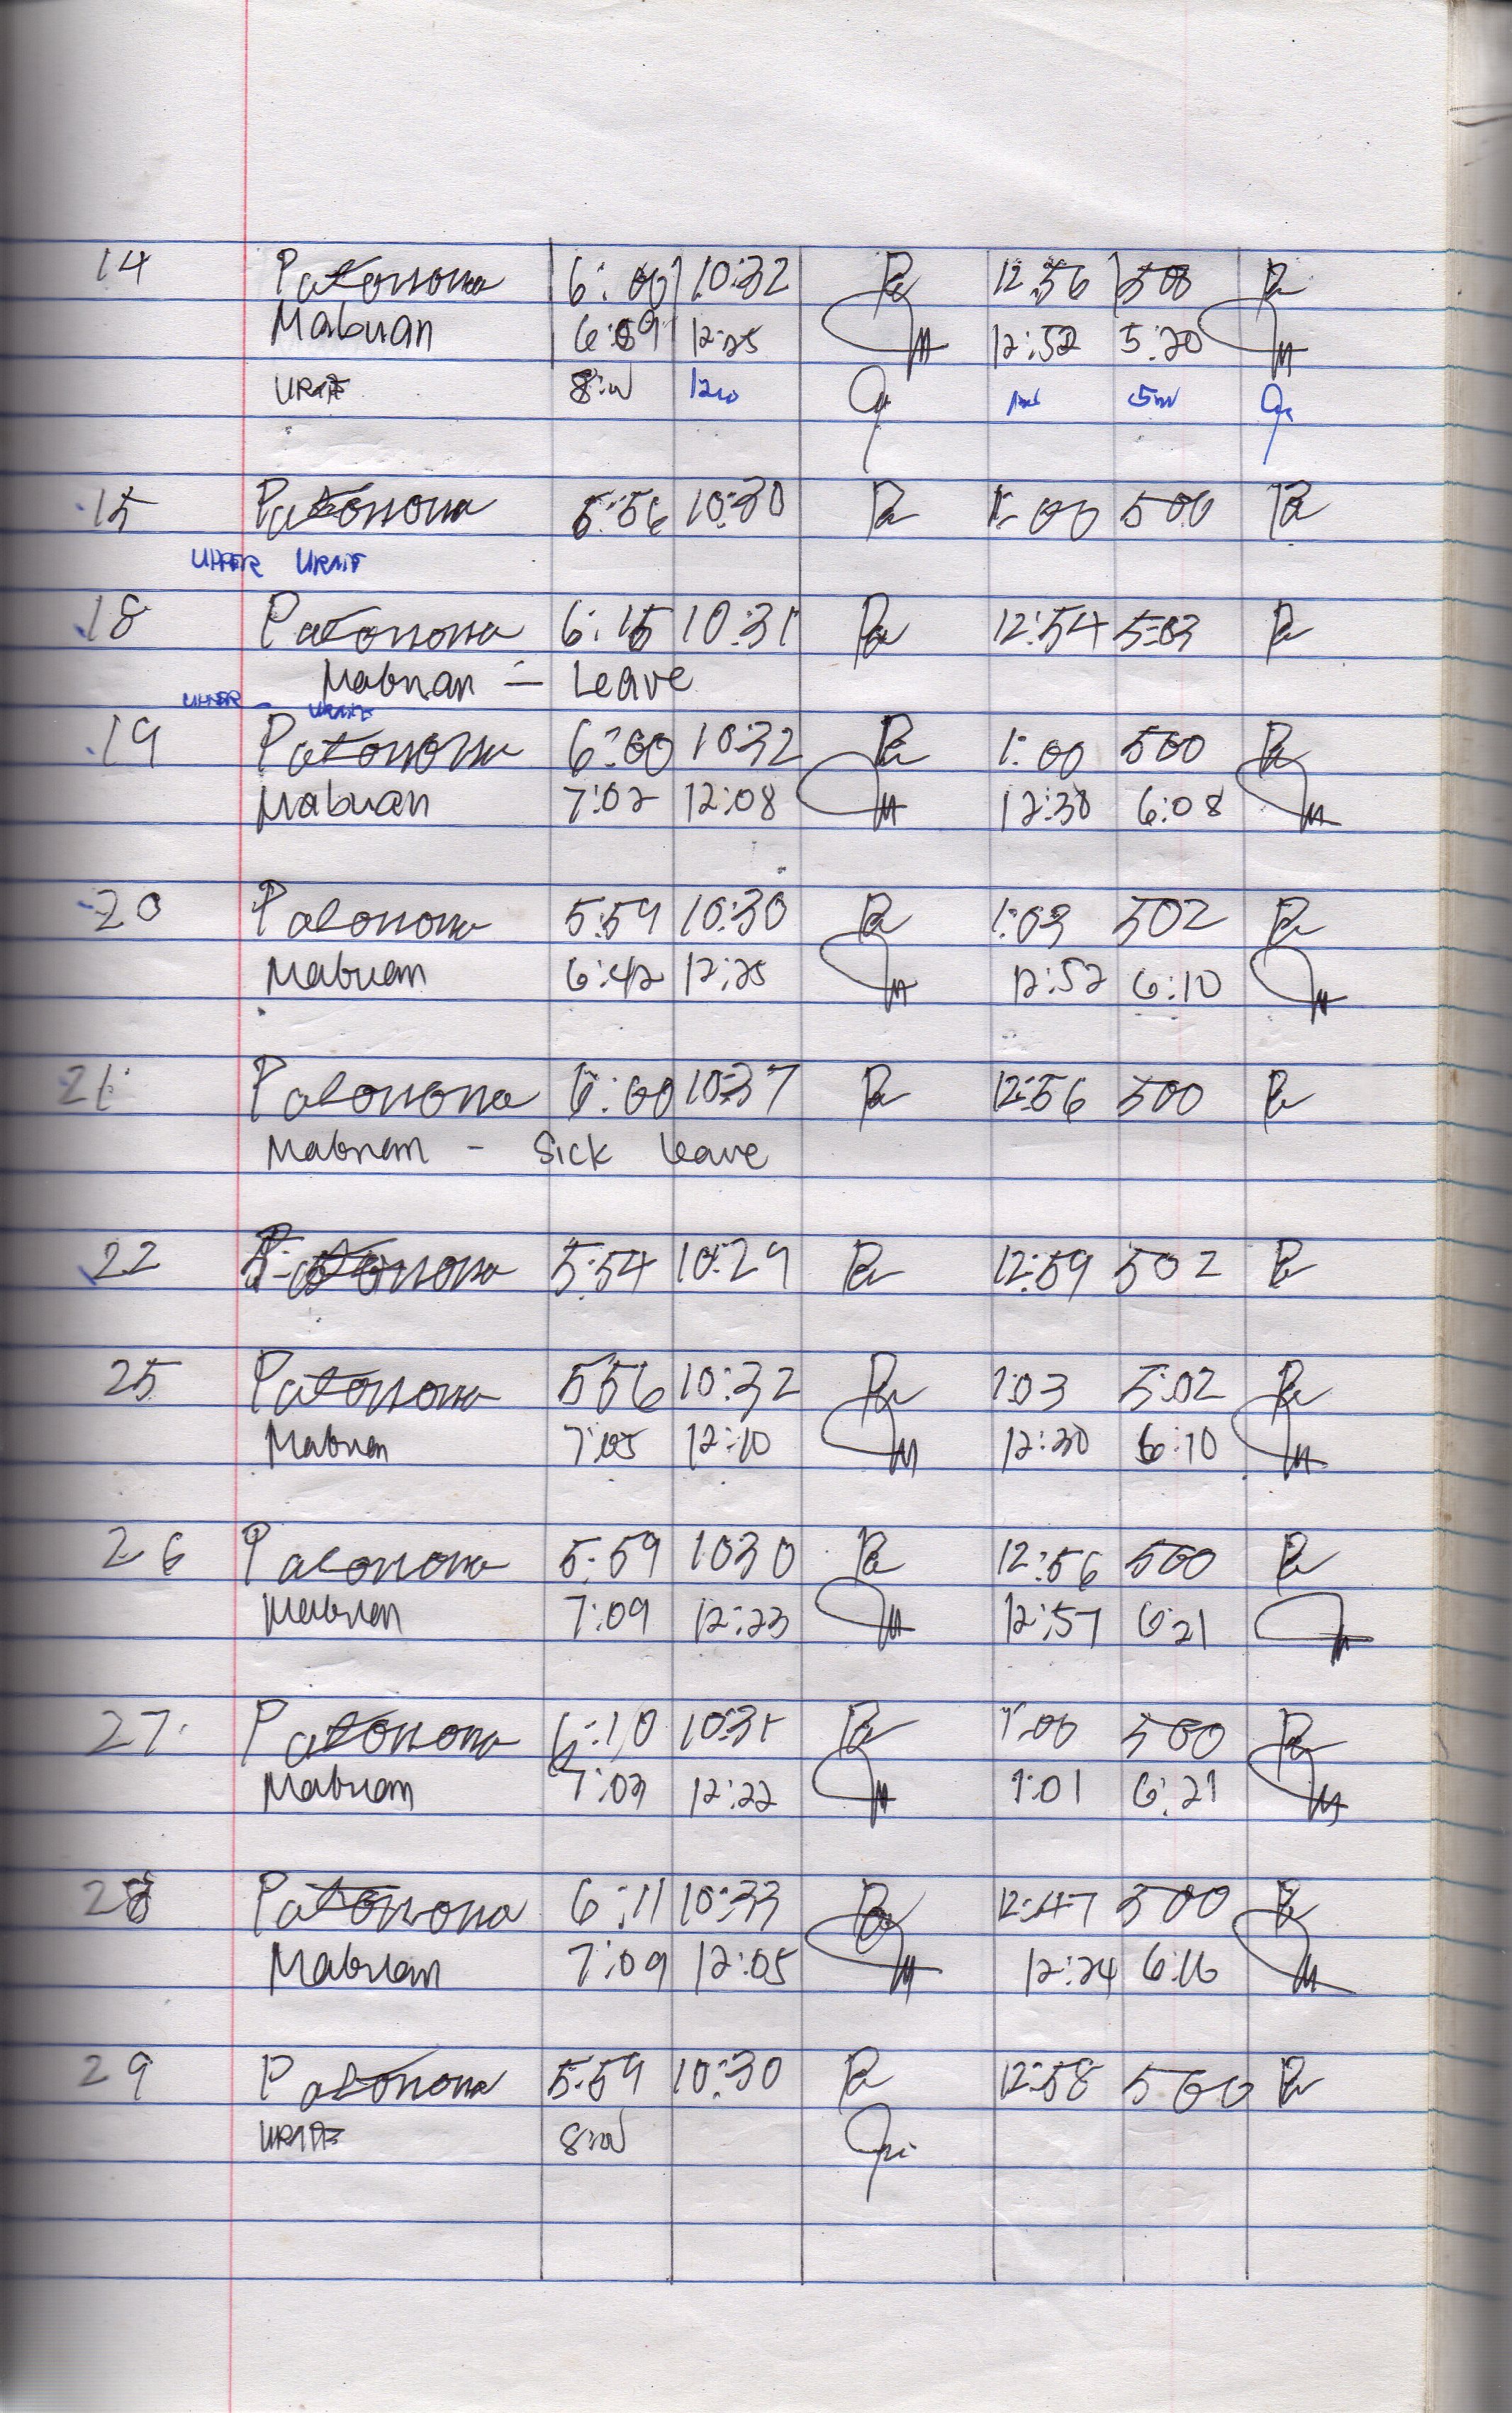 14 Patonona 6:00 10:32 Pa 12:56 508 Pa
Mabuan 6:59 12:25 12:52 5:20
URAE 8:00 1200 100 500
15 Patonona 5:56 10:30 Pa 1:00 500 Pa
UPPER URAE
18 Patonona 6:15 10:31 Pa 12:54 5:03 Pa
Mabuan - Leave
UPPER - URAE
19 Patonona 6:00 10:32 Pa 1:00 500 Pa
Mabuan 7:02 12:08 12:30 6:08
20 Patonona 5:59 10:30 Pa 1:03 502 Pa
Mabuan 6:42 12:25 12:52 6:10
21 Patonona 6:00 10:37 Pa 12:56 500 Pa
Mabuan - Sick leave
22 Patonona 5:54 10:29 Pa 12:59 502 Pa
25 Patonona 556 10:32 Pa 1:03 5:02 Pa
Mabuan 7:05 12:10 12:30 6:10
26 Patonona 5:59 1030 Pa 12:56 500 Pa
Mabuan 7:09 12:23 12:57 6:21
27 Patonona 6:10 10:31 Pa 1:00 500 Pa
Mabuan 7:03 12:22 1:01 6:21
28 Patonona 6:11 10:33 Pa 12:47 500 Pa
Mabuan 7:09 12:05 12:24 6:16
29 Patonona 5:59 10:30 Pa 12:58 500 Pa
URAE 8:00